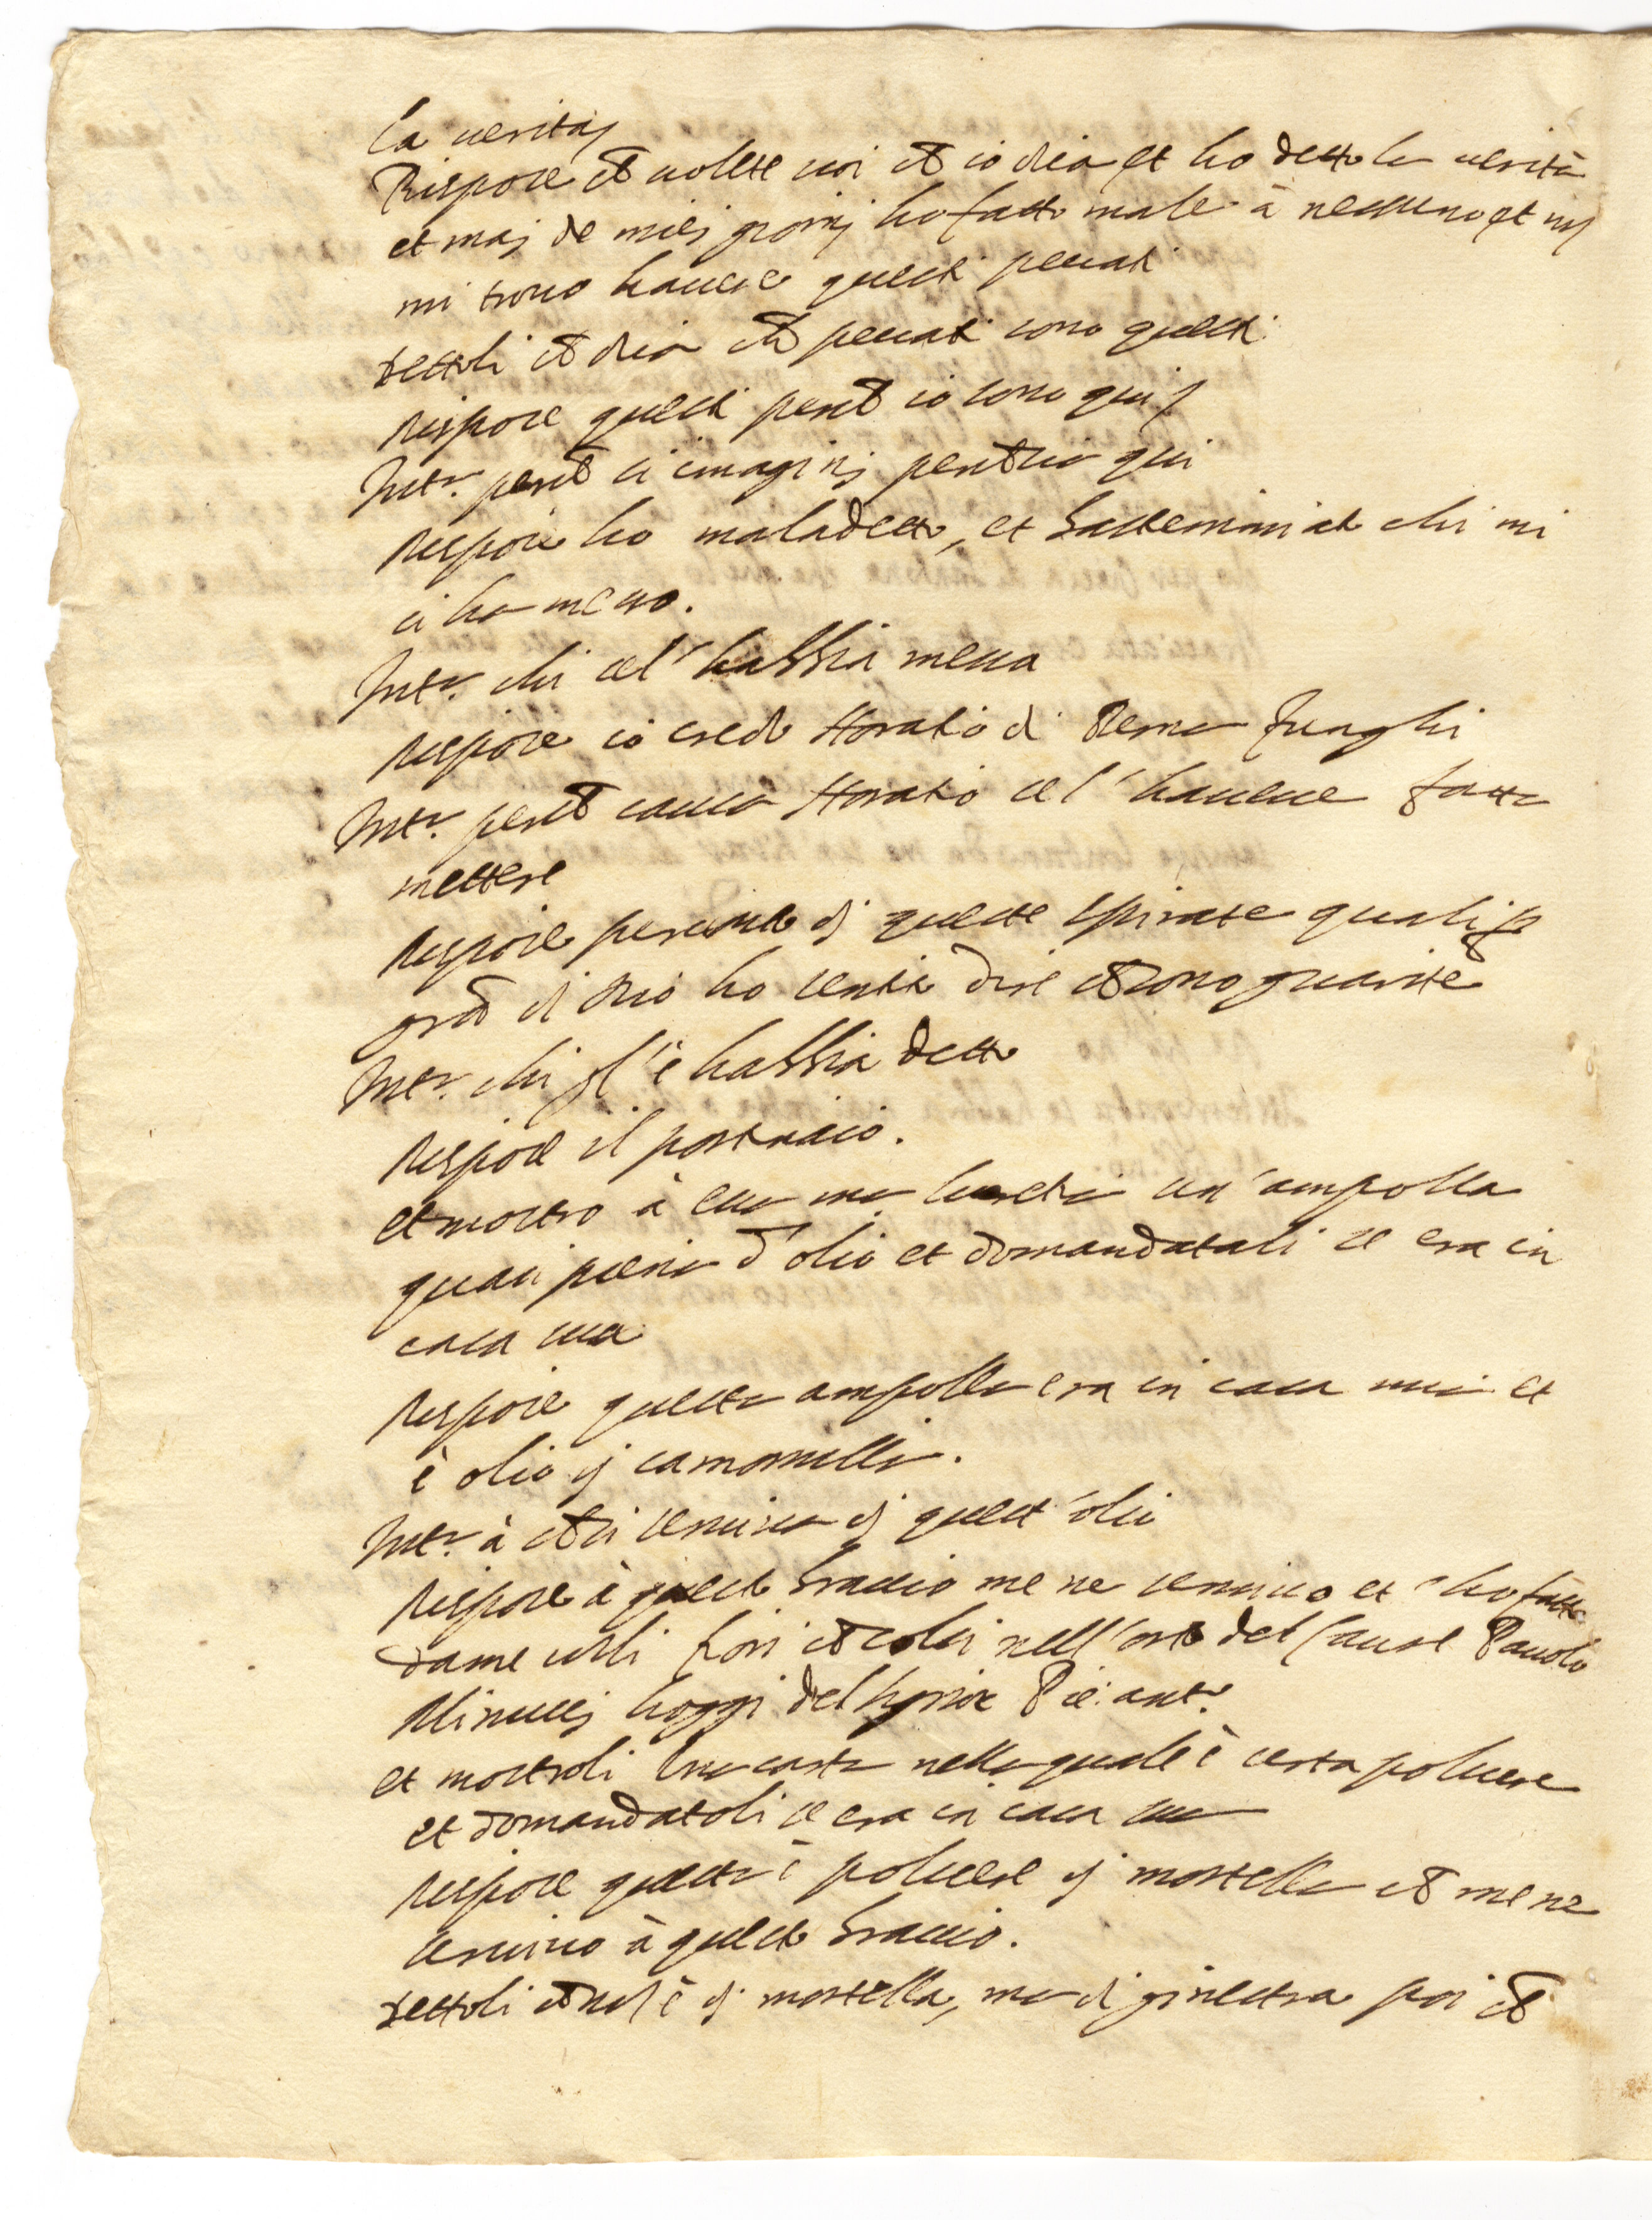 la verità
Rispose che volete voi che io dica et ho detto la verità
et mai de miei giorni ho fatto male à nessuno et non
mi trovo havere questi peccati
dettoli che dica che peccati sono questi
rispose questi perche io sono qui
Intr. perche si imagini perche sia qui
rispose ho maladetto, et bastemmiato chi mi
ci ha messo.
Intr. chi cel' habbia messa
rispose io credo Horatio di Pierino Funghi
Intr. perche causa Horatio cel' havesse fatta
mettere
rispose per conto di queste spiritate quali per
gratia di Dio ho sentito dire che sono guarite
Intr. chi gl'è habbia detto
rispose il portinaio.
et mostro à essa una un' ampolla
quasi piena d'olio et domandatali se era in
casa sua
rispose questa ampolla era in casa mia et
è olio di camomilla.
Intr. à che si serviva di quest' olio
rispose à questo braccio me ne servivo et l'ho fatto
da me colli fiori che colsi nell'orto del Cause Pavolo
Minucci hoggi del signior Pie: ant.o
et mostroli una carta nella quale è certa polvere
et domandatoli se era in casa sua
rispose questa è polvere di mortella che me ne
servivo à questo braccio.
dettoli che non è di mortella, ma di ginestra poi che